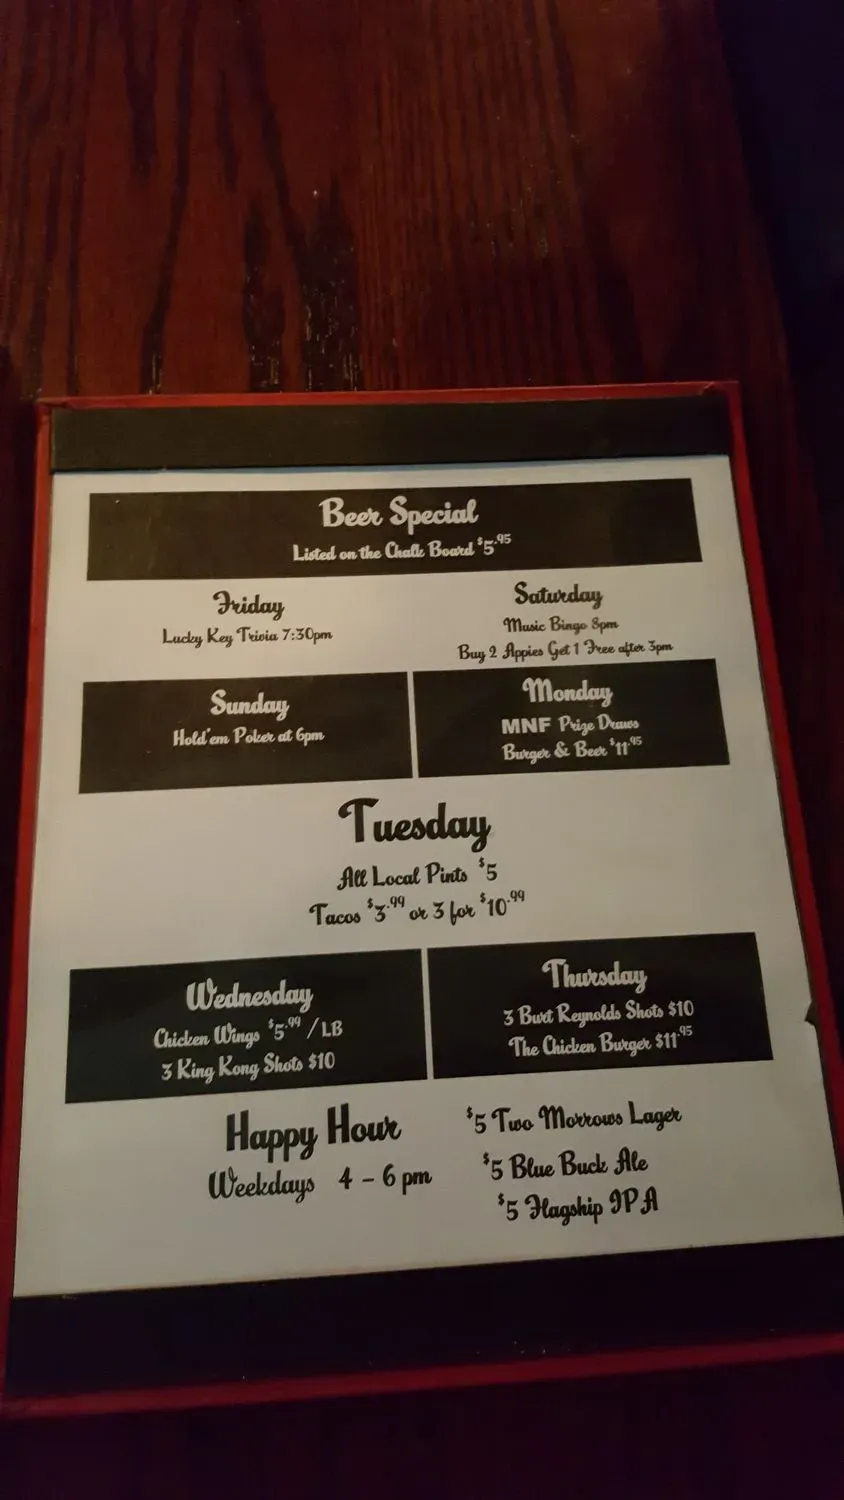 Beer Special
Listed on the Chalk Board $5.95
Friday
Lucky Key Trivia 7:30pm
Saturday
Music Bingo 8pm
Buy 2 Appies Get 1 Free after 3pm
Sunday
Hold'em Poker at 6pm
Monday
MNF Prize Draws
Burger & Beer $11.95
Tuesday
All Local Pints $5
Tacos $3.99 or 3 for $10.99
Wednesday
Chicken Wings $5.99 /LB
3 King Kong Shots $10
Thursday
3 Burt Reynolds Shots $10
The Chicken Burger $11.95
Happy Hour
Weekdays 4 - 6 pm
$5 Two Morrows Lager
$5 Blue Buck Ale
$5 Flagship IPA